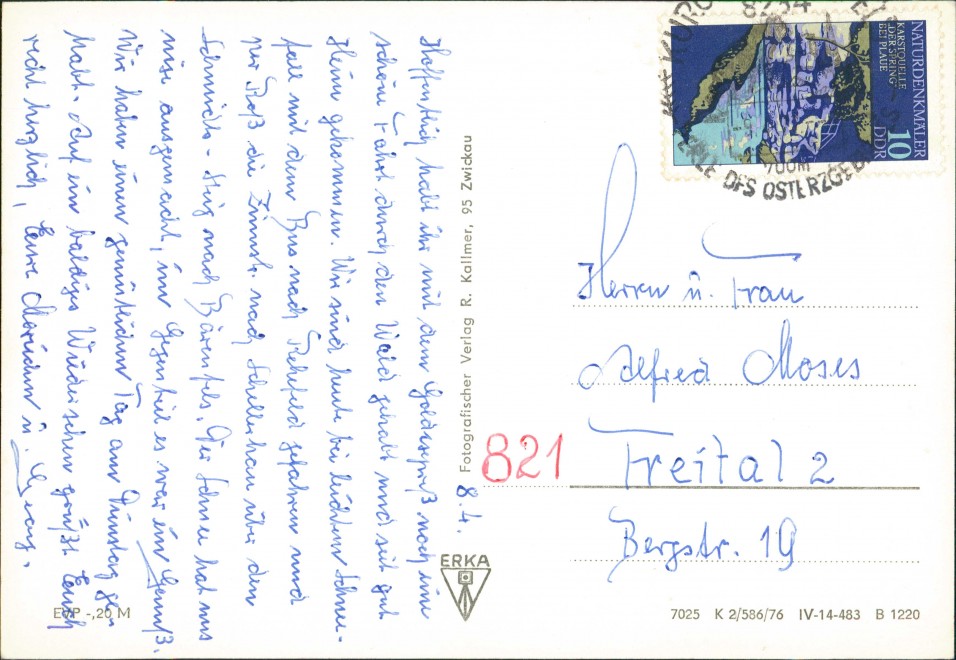 8.4.
Hoffentlich habt ihr mit dem Goldexpreß noch eine
schöne Fahrt durch den Wald gehabt und seit gut
Heim gekommen. Wir sind heute bei leichtem Schnee-
fall mit dem Bus nach Rehefeld gefahren und
per Peß die nach Schellerhau über den
Schmied - Steig nach Bärenfels. Der Schnee hat uns
nix ausgemacht, im Gegenteil es war ein Genuß.
Wir haben einen gemütlichen Tag am Dienstag ge-
habt. Auf ein baldiges Wiedersehen grüßt Euch
recht herzlich, Eure u. Georg.
EVP -,20 M
Fotografischer Verlag R. Kallmer, 95 Zwickau
ERKA
NATURDENKMÄLER
KARSTQUELLE
"DER SPRING"
BEI PLAUE
10
DDR
8234
KURO
700m
DES OSTERZGEB
Herrn u. Frau
Alfred Moses
821
Freital 2
Bergstr. 19
7025 K 2/586/76 IV-14-483 B 1220